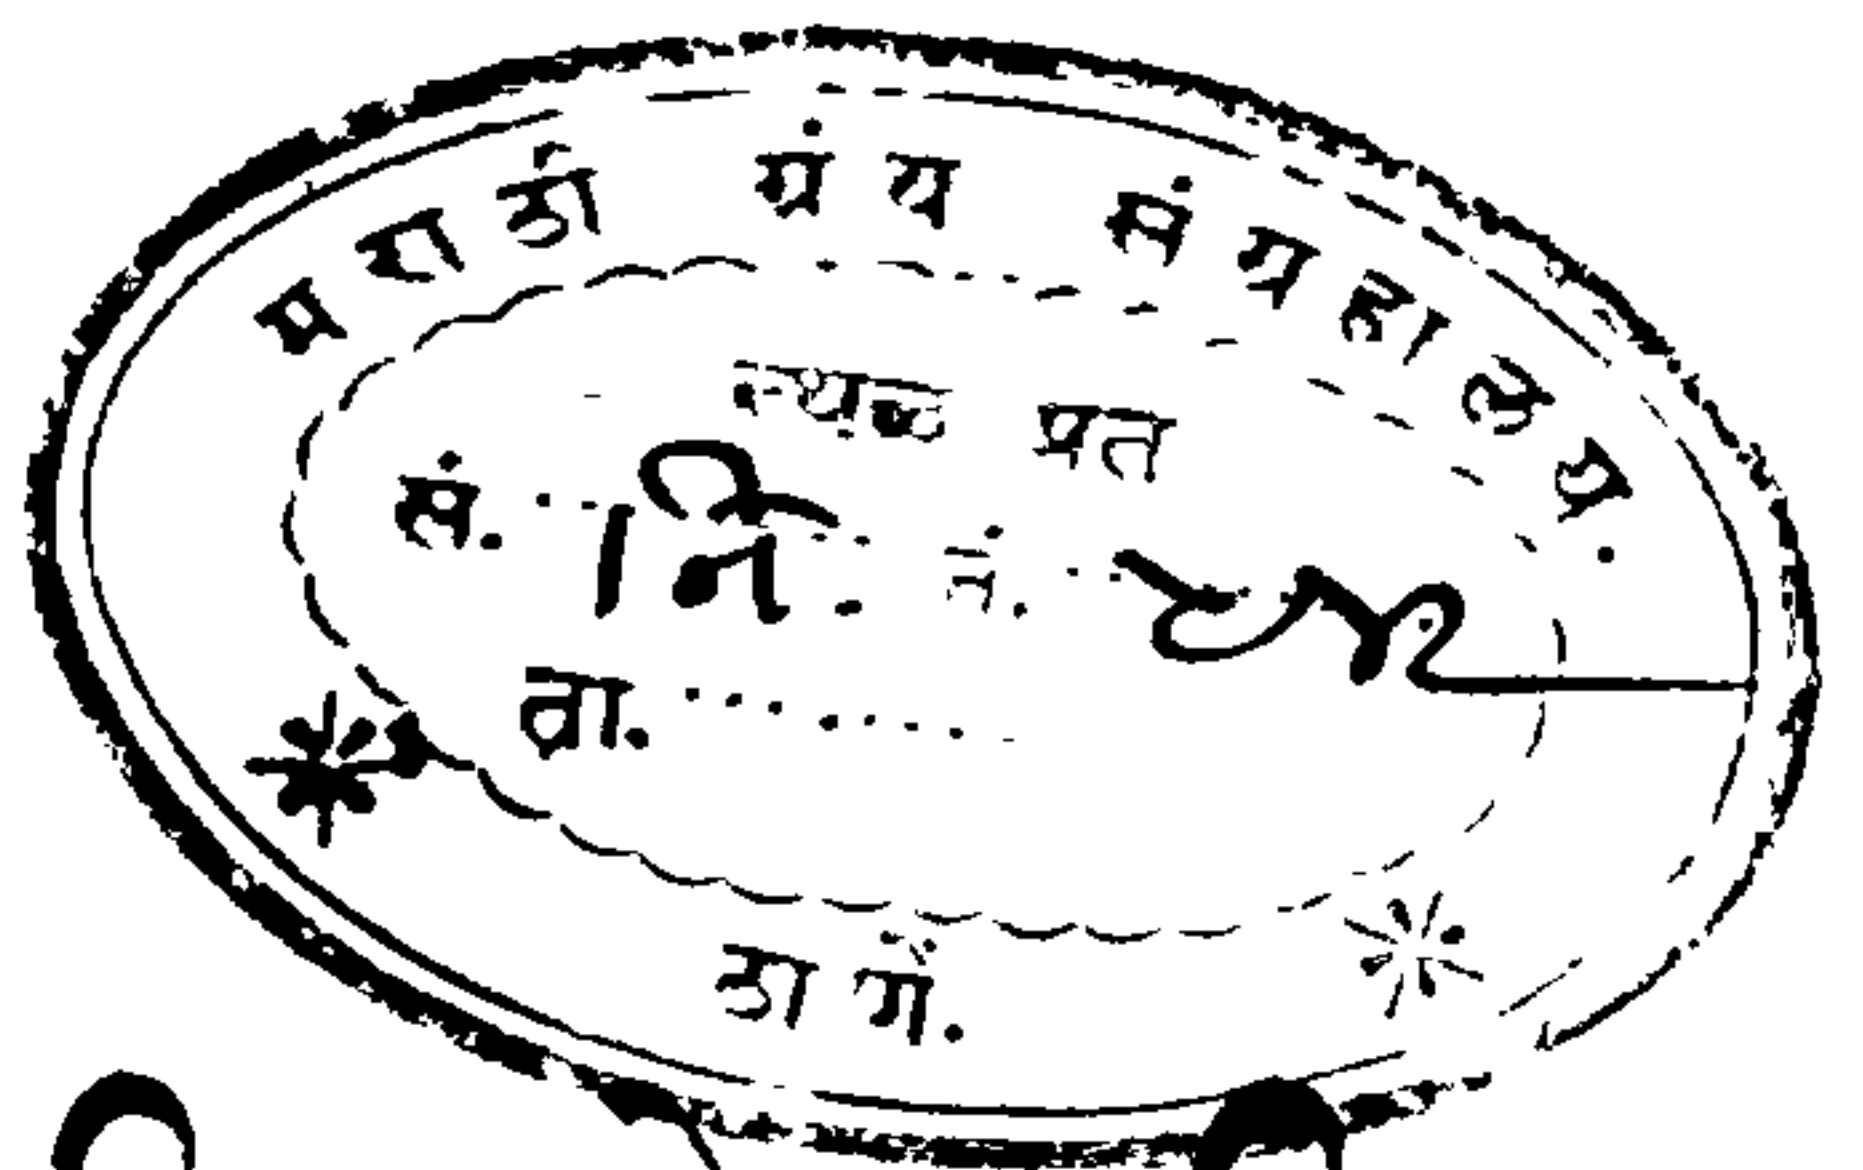 मराठी ग्रंथ संग्रहालय.
स्थळ प्रत
सं. नि. नं.
वा.
ठाणें.